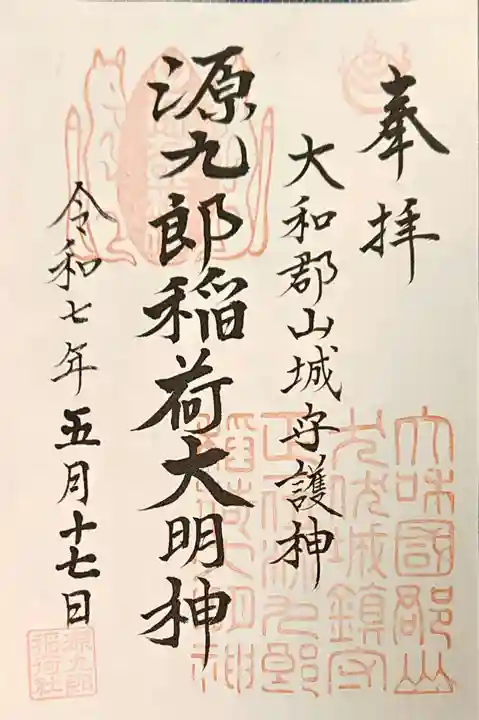 奉拝
大和郡山城守護神
源九郎稲荷大明神
令和七年五月十七日
源九郎
稲荷社